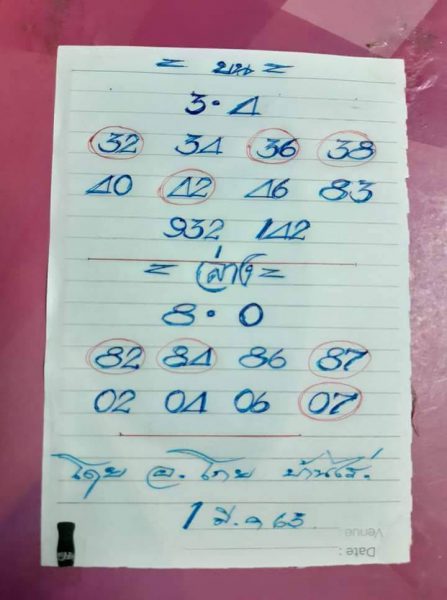 = บน =
3 · 4
32 34 36 38
40 42 46 83
932 142
= ล่าง =
8 · 0
82 84 86 87
02 04 06 07
โดย อ. โกย บ้านไร่.
1 มี.ค 63
Venue
Date :